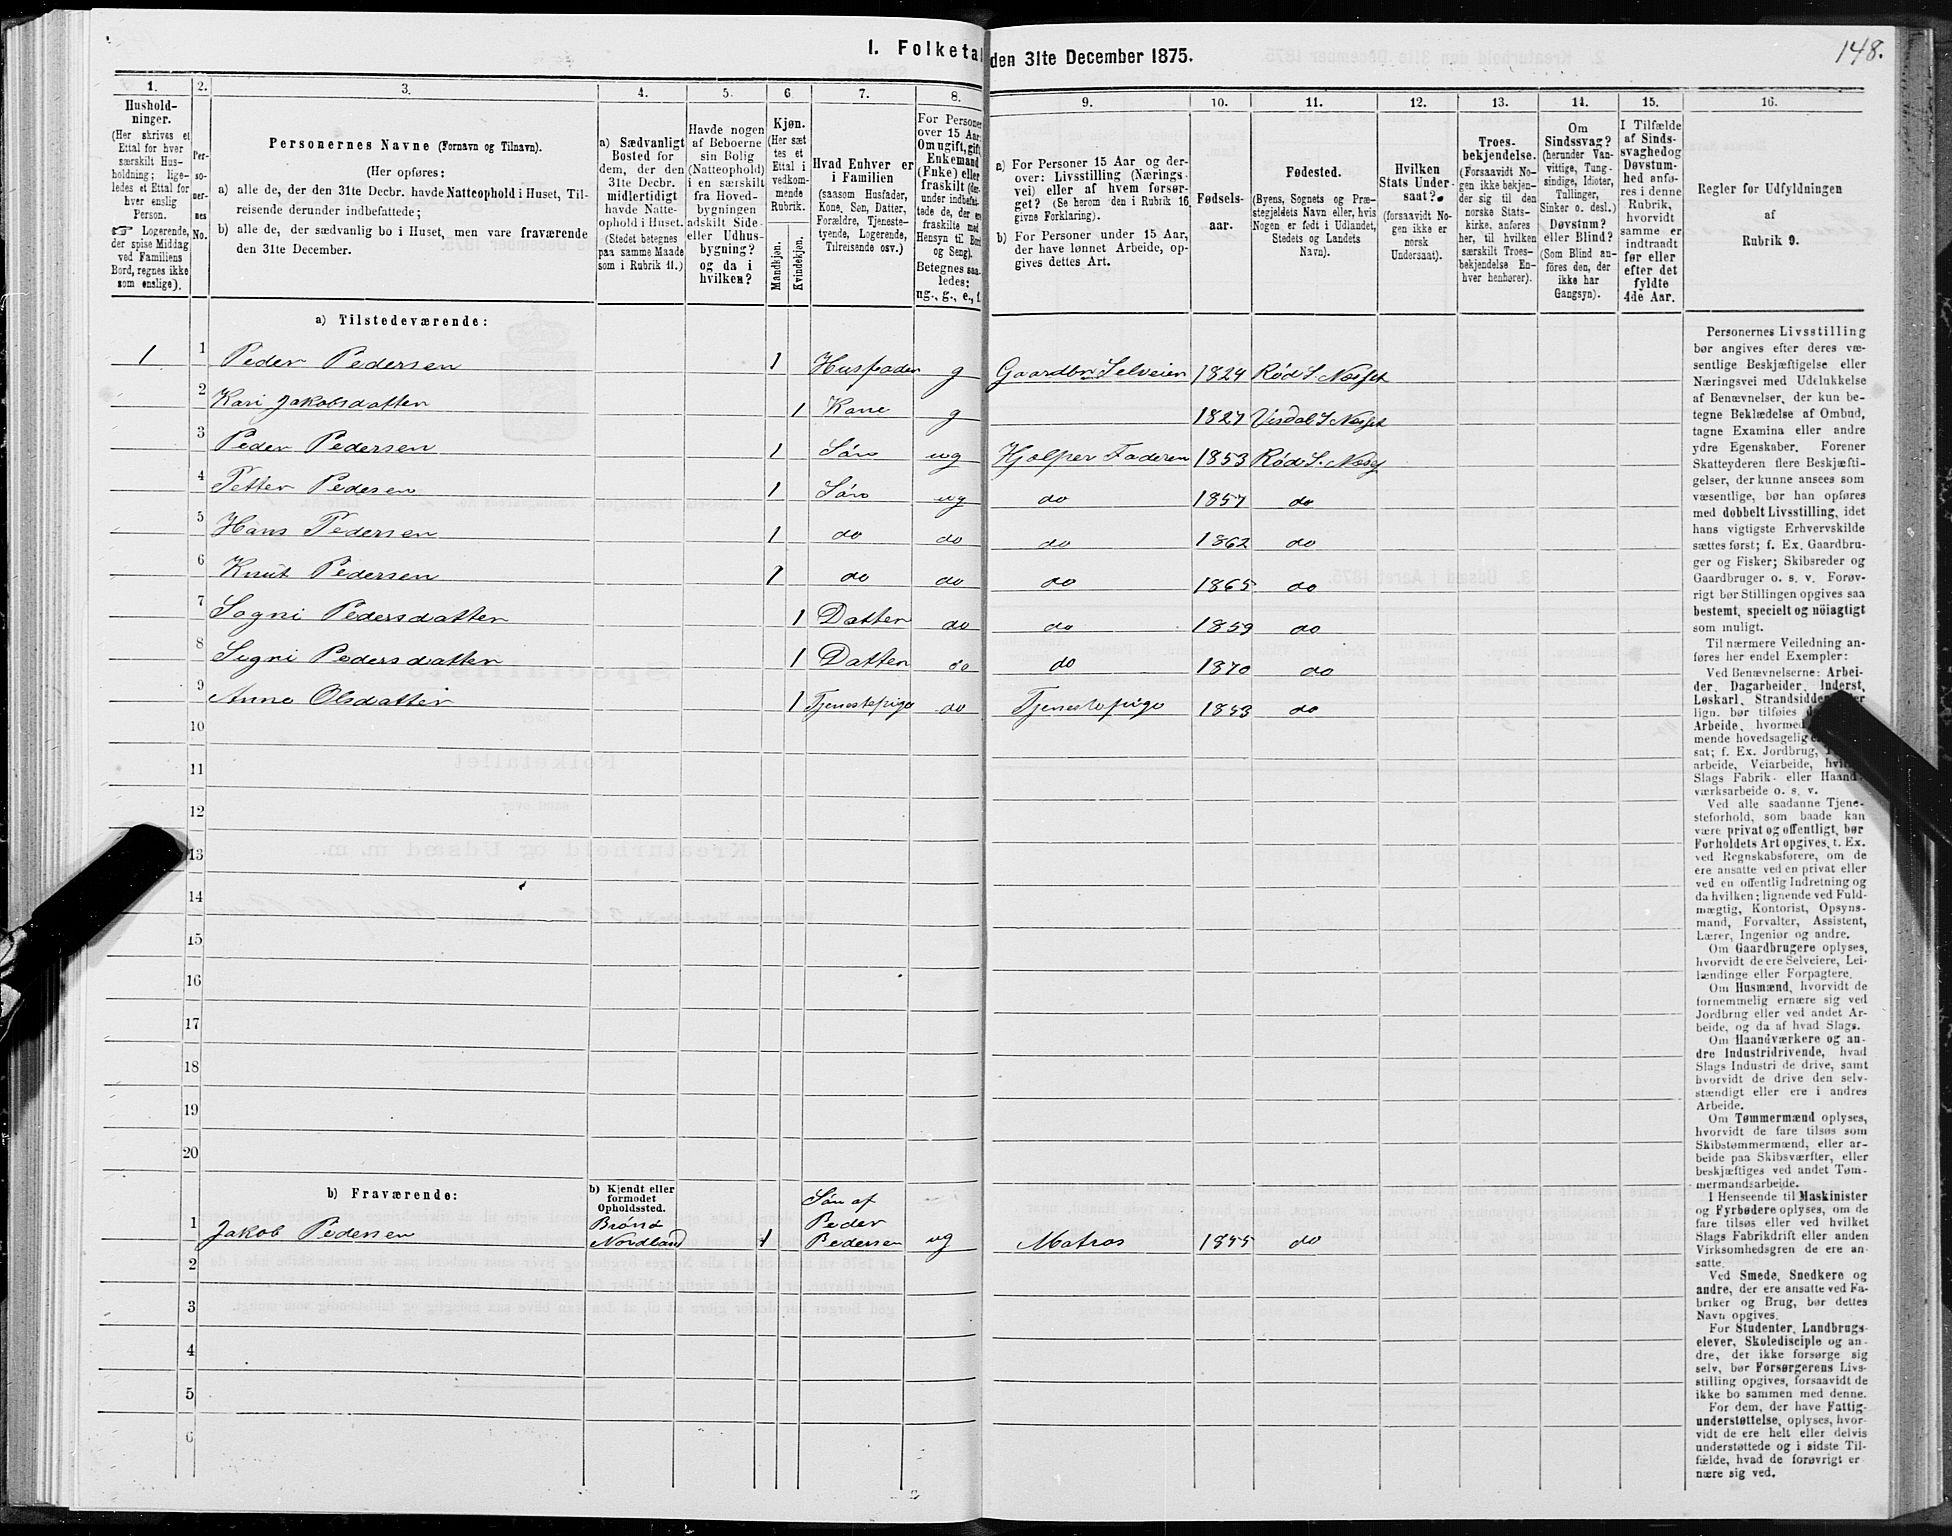 148.
1. Folketal den 31te December 1875.
1. 2. 3. 4. 5. 6. 7. 8. 9. 10. 11. 12. 13. 14. 15. 16.
Hushold-
ninger.
(Her skrives et
Ettal for hver
særskilt Hus-
holdning; lige-
ledes et Ettal for
hver enslig
Person.
☞ Logerende,
der spise Middag
ved Familiens
Bord, regnes ikke
som enslige).
Per-
so-
ner-
nes
No.
Personernes Navne (Fornavn og Tilnavn).
(Her opføres:
a) alle de, der den 31te Decbr. havde Natteophold i Huset, Til-
reisende derunder indbefattede;
b) alle de, der sædvanlig bo i Huset, men vare fraværende
den 31te December.
a) Sædvanligt
Bosted for
dem, der den
31te Decbr.
midlertidigt
havde Natte-
ophold i Huset.
(Stedet betegnes
paa samme Maade
som i Rubrik 11.)
Havde nogen
af Beboerne
sin Bolig
(Natteophold)
i en særskilt
fra Hoved-
bygningen
adskilt Side-
eller Udhus-
bygning?
og da i
hvilken?
Kjøn.
(Her sæt
tes et
Ettal i
vedkom-
mende
Rubrik.
Mandkjøn.
Kvindekjøn.
Hvad Enhver er
i Familien
(saasom Husfader,
Kone, Søn, Datter,
Forældre, Tjeneste-
tyende, Logerende,
Tilreisende osv.)
For Personer
over 15 Aar:
Om ugift, gift,
Enkemand
(Enke) eller
fraskilt (der-
under indbefat-
tede de, der ere
fraskilte med
Hensyn til Bord
og Seng).
Betegnes saa-
ledes:
ug., g., e., f.
a) For Personer 15 Aar og der-
over: Livsstilling (Nærings-
vei) eller af hvem forsør-
get? (Se herom den i Rubrik 16
givne Forklaring).
b) For Personer under 15 Aar,
der have lønnet Arbeide, op-
gives dettes Art.
Fødsels-
aar.
Fødested.
(Byens, Sognets og Præ-
stegjeldets Navn eller, hvis
Nogen er født i Udlandet,
Stedets og Landets
Navn).
Hvilken
Stats Under-
saat?
(forsaavidt No-
gen ikke er
norsk
Undersaat).
Troes-
bekjendelse.
(Forsaavidt No-
gen ikke bekjen-
der sig til den
norske Stats-
kirke, anføres
her, til hvilken
særskilt Troes-
bekjendelse En-
hver henhører).
Om
Sindssvag?
(herunder Van-
vittige, Tung-
sindige, Idioter,
Tullinger,
Sinker o. desl.)
Døvstum?
eller Blind?
(Som Blind an-
føres den, der
ikke har
Gangsyn).
I Tilfælde
af Sinds-
svaghed og
Døvstum-
hed anfø-
res i denne
Rubrik,
hvorvidt
samme er
indtraadt
før eller
efter det
fyldte
4de Aar.
Regler for Udfyldningen
af
Rubrik 9.
a) Tilstedeværende:
1 1 Peder Pedersen 1 Husfader g Gaardbr Selveier 1824 Rød S. Nesset
2 Kari Jakobsdatter 1 Kone g 1827 Visdal S Nesset
3 Peder Pedersen 1 Søn ug Hjælper Faderen 1853 Rød S. Nes
4 Petter Pedersen 1 Søn ug do 1857 do
5 Hans Pedersen 1 do do do 1862 do
6 Knut Pedersen 1 do do do 1865 do
7 Sogni Pedersdatter 1 Datter do do 1859 do
8 Signi Pedersdatter 1 Datter do do 1870 do
9 Anne Olsdatter 1 Tjenestepige do Tjenestepige 1853 do
10
11
12
13
14
15
16
17
18
19
20
b) Fraværende:
b) Kjendt eller
formodet
Opholdssted.
1 Jakob Pedersen Brønø Nordland 1 Søn af Peder Pedersen ug Matros 1855 do
2
3
4
5
6
Personernes Livsstilling
bør angives efter deres væ-
sentlige Beskjæftigelse eller
Næringsvei med Udelukkelse
af Benævnelser, der kun be-
tegne Beklædelse af Ombud,
tagne Examina eller andre
ydre Egenskaber. Forener
Skatteyderen flere Beskjæfti-
gelser, der kunne ansees som
væsentlige, bør han opføres
med dobbelt Livsstilling, idet
hans vigtigste Erhvervskilde
sættes først; f. Ex. Gaardbru-
ger og Fisker; Skibsreder og
Gaardbruger o. s. v. Forøv-
rigt bør Stillingen opgives saa
bestemt, specielt og nöiagtigt
som muligt.
Til nærmere Veiledning an-
føres her endel Exempler:
Ved Benævnelserne: Arbei-
der, Dagarbeider, Inderst,
Løskarl, Strandsidder eller
lign. bør tilføies
Arbeide, hvormed
mende hovedsagelig
sat; f. Ex. Jordbrug,
arbeide, Veiarbeide,
Slags Fabrik- eller Haand-
værksarbeide o. s. v.
Ved alle saadanne Tjene-
steforhold, som baade kan
være privat og offentligt, bør
Forholdets Art opgives, t. Ex.
ved Regnskabsførere, om de
ere ansatte ved en privat eller
ved en offentlig Indretning og
da hvilken; lignende ved Fuld-
mægtig, Kontorist, Opsyns-
mand, Forvalter, Assistent,
Lærer, Ingeniør og andre.
Om Gaardbrugere oplyses,
hvorvidt de ere Selveiere, Lei-
lændinge eller Forpagtere.
Om Husmænd, hvorvidt de
fornemmelig ernære sig ved
Jordbrug eller ved andet Ar-
beide, og da af hvad Slags.
Om Haandværkere og an-
dre Industridrivende, hvad
Slags Industri de drive, samt
hvorvidt de drive den selv-
stændigt eller ere i andres
Arbeide.
Om Tømmermænd oplyses,
hvorvidt de fare tilsøs som
Skibstømmermænd, eller ar-
beide paa Skibsværfter, eller
beskjæftiges ved andet Tøm-
mermandsarbeide.
I Henseende til Maskinister
og Fyrbødere oplyses, om de
fare tilsøs eller ved hvilket
Slags Fabrikdrift eller anden
Virksomhedsgren de ere an-
satte.
Ved Smede, Snedkere og
andre, der ere ansatte ved Fa-
briker og Brug, bør dettes
Navn opgives.
For Studenter, Landbrugs-
elever, Skoledisciple og an-
dre, der ikke forsørge sig
selv, bør Forsørgerens Livs-
stilling opgives, forsaavidt de
ikke bo sammen med denne.
For dem, der have Fattig-
understøttelse, oplyses, hvor-
vidt de ere helt eller delvis
understøttede og i sidste Til-
fælde, hvad de forøvrigt er-
nære sig ved.